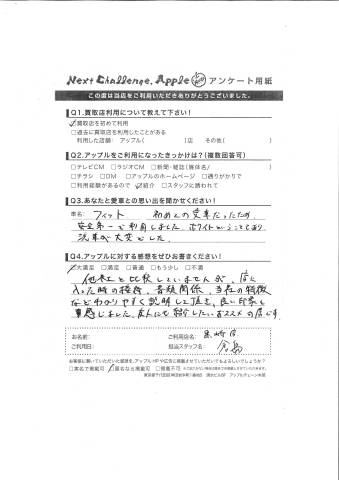 Next Challenge. Apple アンケート用紙
この度は当店をご利用いただきありがとうございました。
Q1.買取店利用について教えて下さい!
☑買取店を初めて利用
□過去に買取店を利用したことがある
利用した店舗: アップル( )店 その他( )
Q2.アップルをご利用になったきっかけは?(複数回答可)
□テレビCM □ラジオCM □新聞・雑誌(媒体名/ )
□チラシ □DM □アップルのホームページ □通りがかりで
□利用経験があるので ☑紹介 □スタッフに誘われて
Q3.あなたと愛車との思い出をお聞かせください!
車名: フィット 初めての愛車だったため、
安全第一で利用しました。ホワイトということもあり
洗車が大変でした。
Q4.アップルに対する感想をぜひお書きください!
☑大満足 □満足 □普通 □もう少し □不満
他社と比較していませんが、店に
入った時の接待、金額関係、当社の特徴
などわかりやすく説明して頂き、良い印象と
感じました。友人にも紹介したいおススメの店です。
お名前: ご利用店名:
ご利用日: 担当スタッフ名:
お客様に書いていただいた感想を、アップルHPや広告に掲載させていただいてもよろしいでしょうか?
□実名で掲載可 ☑匿名なら掲載可 □掲載不可